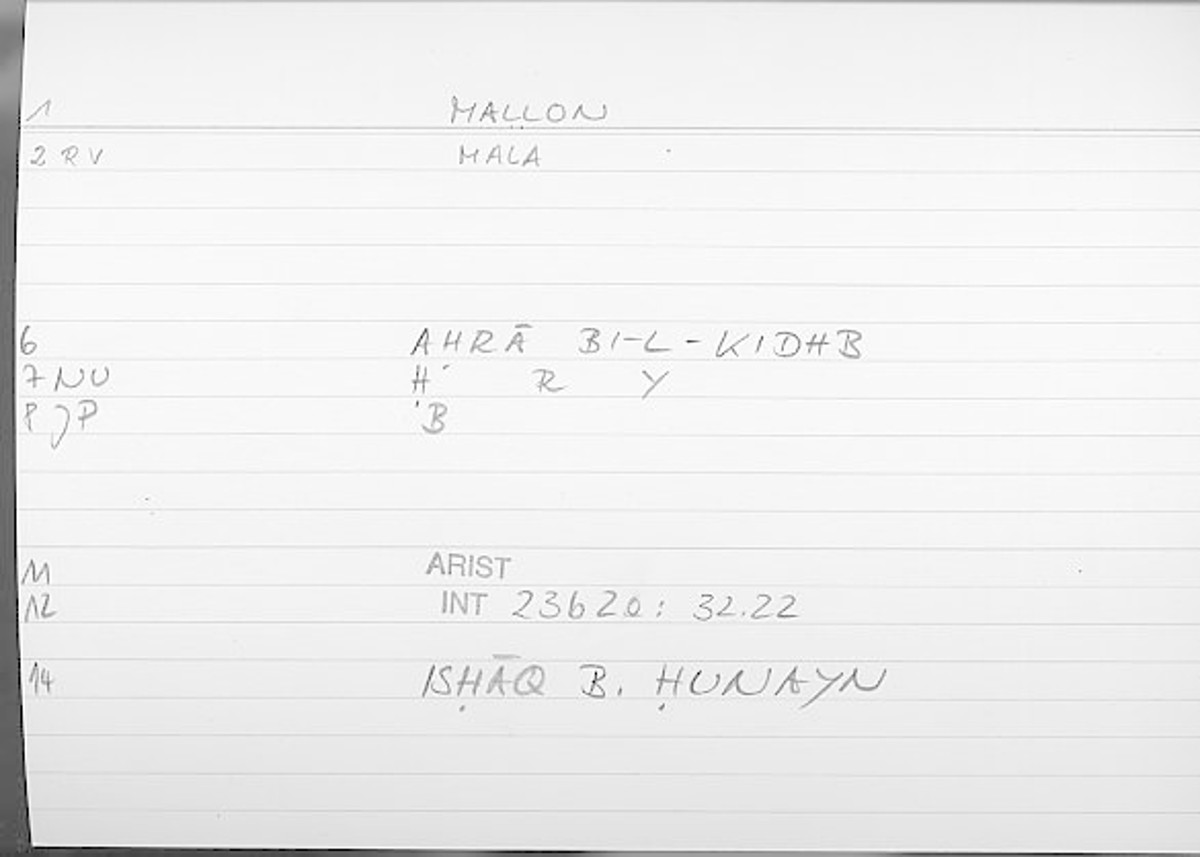 1 MALLON
2 RV MALA
6 AHRĀ BI-L-KIDHB
7 NU Ḥ R Y
8 JP B
11 ARIST
12 INT 23620: 32.22
14 ISḤĀQ B. ḤUNAYN